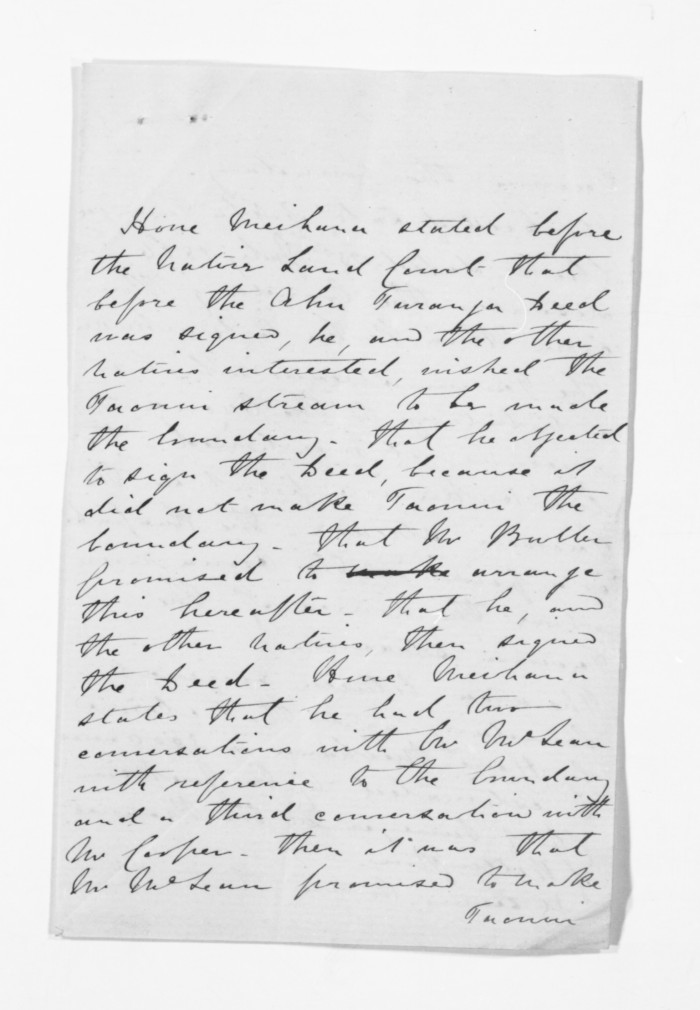 Hone Meihana stated before
the Native Land Court that
before the Ahu Turanga Deed
was signed, he, and the other
natives interested, wished the
Taonui stream to be made
the boundary - that he objected
to sign the Deed, because it
did not make Taonui the
boundary - that Mr Buller
promised to make arrange
this hereafter - that he, and
the other natives, then signed
the Deed - Hone Meihana
states that he had two
conversations with Mr McLean
with reference to the boundary
and a third conversation with
Mr Cooper - then it was that
Mr McLean promised to make
Taonui